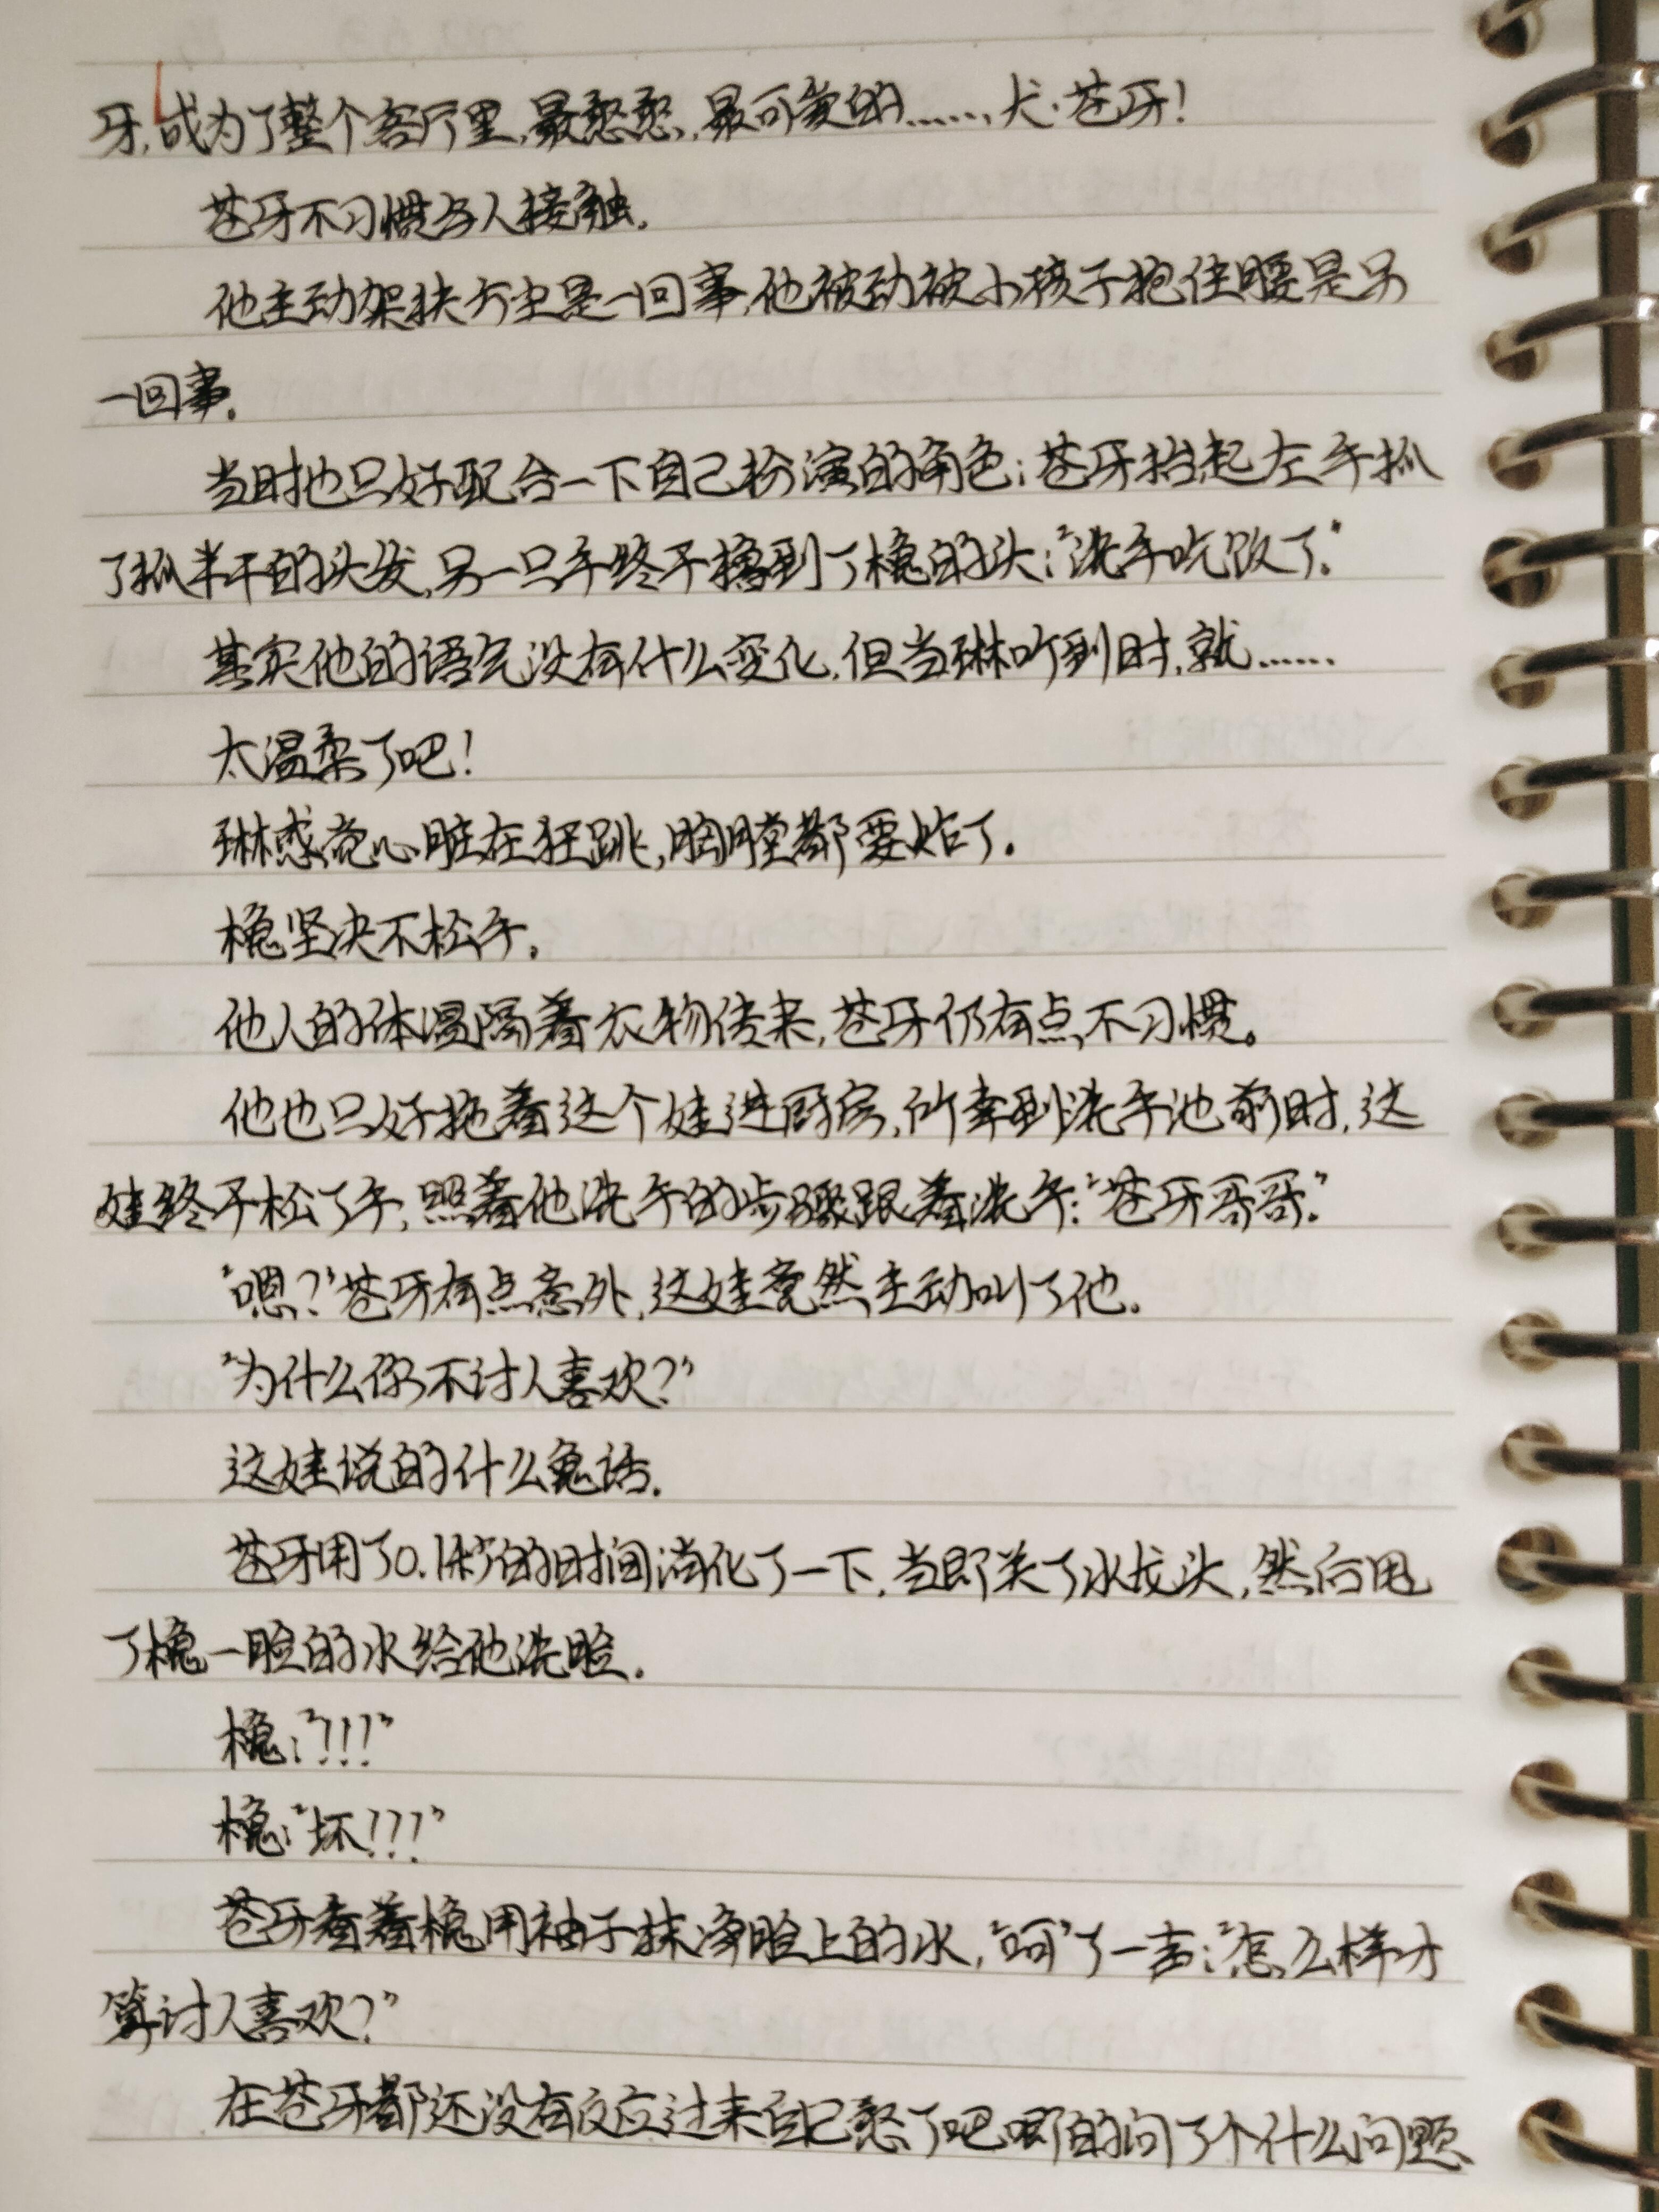 牙,成为了整个客厅里,最憨憨,最可爱的……犬·苍牙!
苍牙不习惯与人接触.
他主动架扶方尘是一回事,他被动被小孩子抱住腰是另
一回事.
当时也只好配合一下自己扮演的角色:苍牙抬起左手抓
了抓半干的头发,另一只手终于撸到了槐的头:“洗手吃饭了.”
其实他的语气没有什么变化,但当琳听到时,就……
太温柔了吧!
琳感觉心脏在狂跳,胸膛都要炸了.
槐坚决不松手.
他人的体温隔着衣物传来,苍牙仍有点不习惯。
他也只好拖着这个娃进厨房,所幸到洗手池前时,这
娃终于松了手,照着他洗手的步骤跟着洗手:“苍牙哥哥.”
“嗯?”苍牙有点意外,这娃竟然主动叫了他.
“为什么你不讨人喜欢?”
这娃说的什么鬼话.
苍牙用了0.1秒的时间消化了一下,当即关了水龙头,然后甩
了槐一脸的水给他洗脸.
槐:“!!!”
槐:“坏!!!”
苍牙看着槐用袖子抹净脸上的水,“呵”了一声:“怎么样才
算讨人喜欢?”
在苍牙都还没有反应过来自己憨了吧唧的问了个什么问题